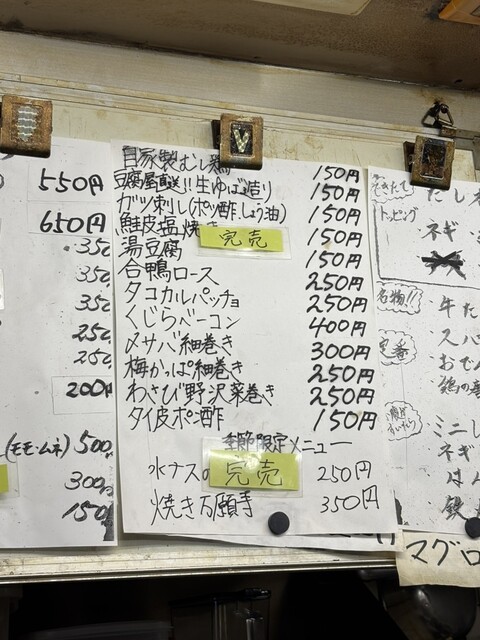 550円
650円
350
350
350
250
250
200円
(モモ・ムネ) 500
300円
150円
自家製むし鶏 150円
豆腐屋直送!!生ゆば造り 150円
ガツ刺し(ポン酢、しょう油) 150円
鮭皮塩焼き 完売 150円
湯豆腐 150円
合鴨ロース 250円
タコカルパッチョ 250円
くじらベーコン 400円
〆サバ細巻き 300円
梅かっぱ細巻き 250円
わさび野沢菜巻き 250円
タイ皮ポン酢 150円
季節限定メニュー
水ナスの 完売 250円
焼き万願寺 350円
トッピング
ネギ
名物!!
牛た
定番
スパ
おでん
ミニし
ネギ
はん
鉄
マグロ